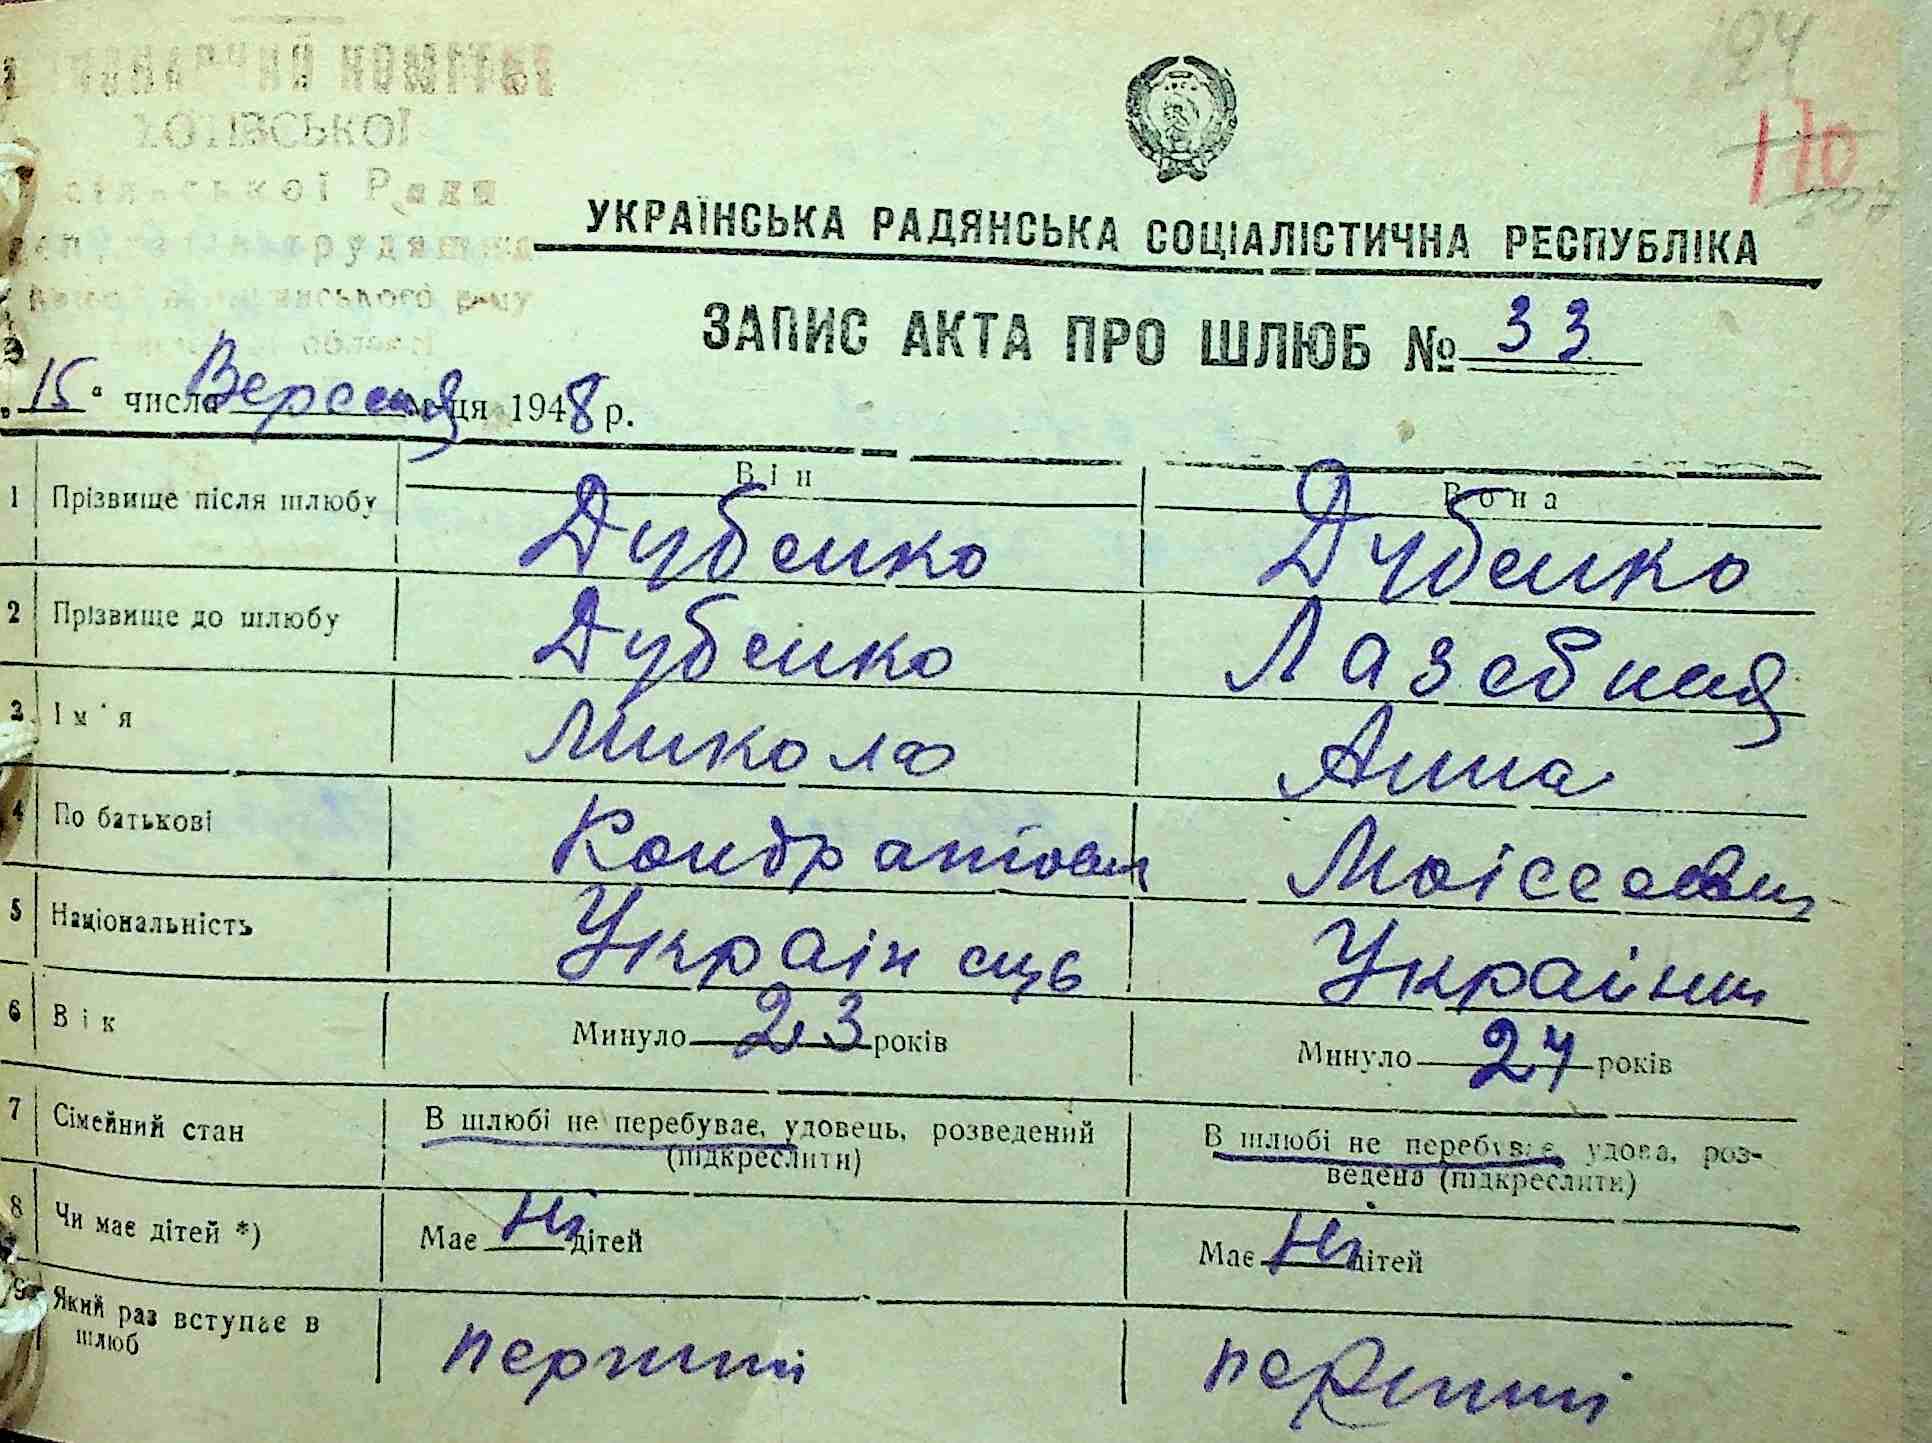 194
170
КОМІТЕТ
сільської Ради
області
УКРАЇНСЬКА РАДЯНСЬКА СОЦІАЛІСТИЧНА РЕСПУБЛІКА
ЗАПИС АКТА ПРО ШЛЮБ № 33
„15“ числа Вересня м-ця 1948 р.
Він Вона
1 Прізвище після шлюбу Дубенко Дубенко
2 Прізвище до шлюбу Дубенко Лазебная
3 Ім'я Микола Анна
4 По батькові Кондратович Моісеевн
5 Національність Украінець Украінка
6 Вік Минуло 23 років Минуло 24 років
7 Сімейний стан В шлюбі не перебуває, удовець, розведений (підкреслити) В шлюбі не перебуває, удова, роз-
ведена (підкреслити)
8 Чи має дітей *) Має Ні дітей Має Ні дітей
9 Який раз вступає в
шлюб перший перший